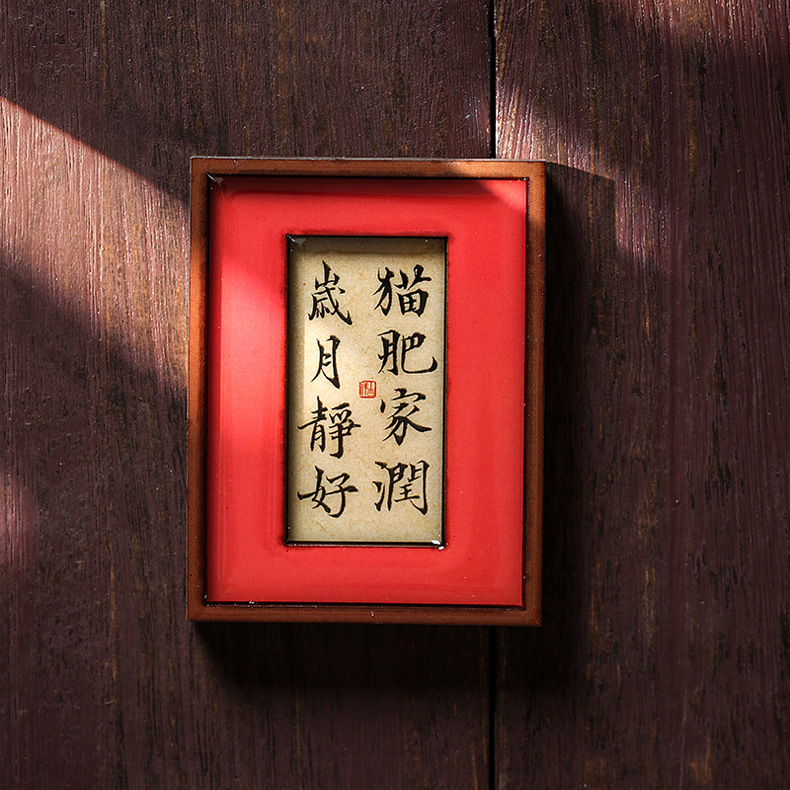 猫肥家潤
歲月靜好